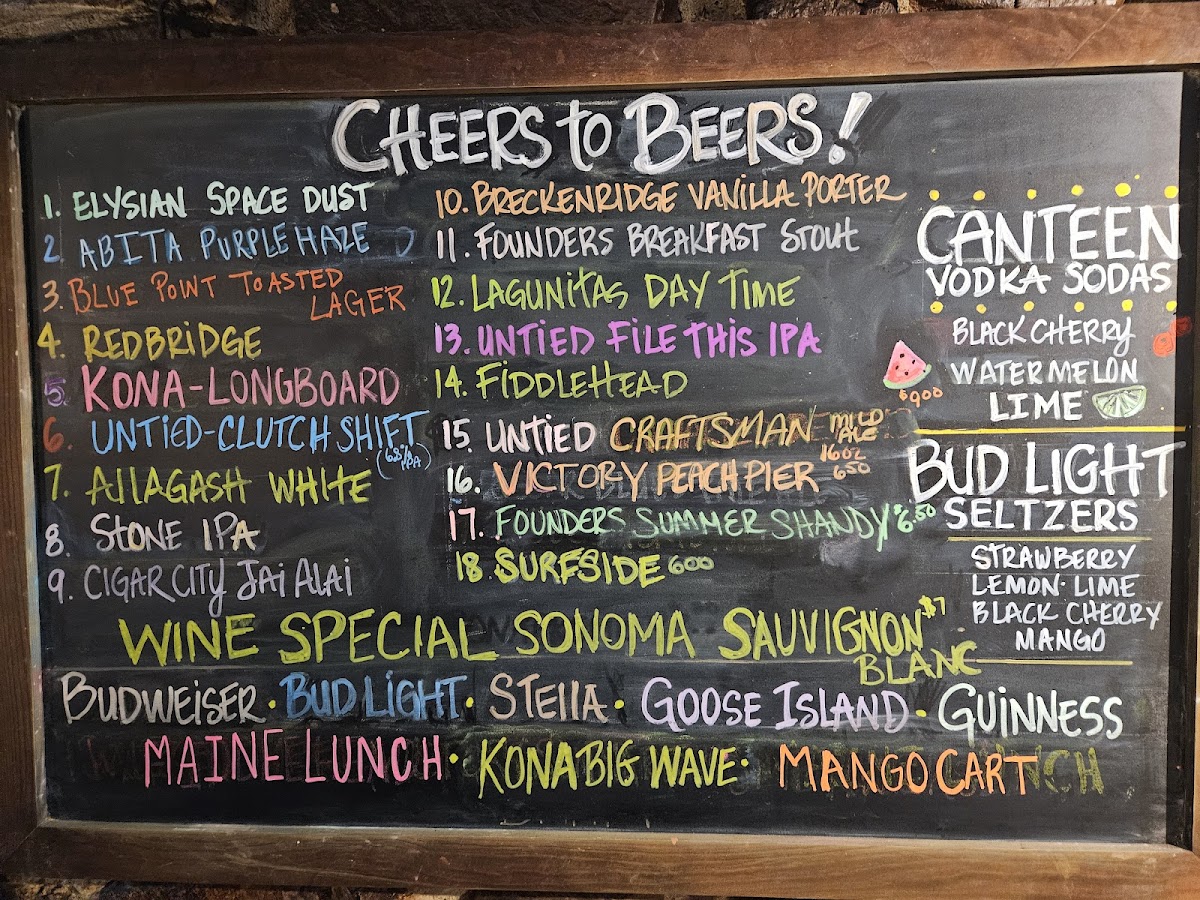 CHEERS to BEERS!
1. ELYSIAN SPACE DUST
2 ABITA PURPLE HAZE
3. BLUE POINT TOASTED
LAGER
4. REDBRIDGE
5. KONA-LONGBOARD
6. UNTIED-CLUTCH SHIFT
7. ALLAGASH WHITE
8. STONE IPA
9. CIGAR CITY JAI ALAI
10. BRECKENRIDGE VANILLA PORTER
11. FOUNDERS BREAKFAST STOUT
12. LAGUNITAS DAY TIME
13. UNTIED FILE THIS IPA
14. FIDDLEHEAD
15. UNTIED CRAFTSMAN MILD
ALE
16. VICTORY PEACH PIER 16OZ
650
17. FOUNDERS SUMMER SHANDY $6.50
18 SURFSIDE 600
CANTEEN
VODKA SODAS
BLACK CHERRY
WATERMELON
$900
LIME
BUD LIGHT
SELTZERS
STRAWBERRY
LEMON-LIME
BLACK CHERRY
MANGO
WINE SPECIAL SONOMA SAUVIGNON $7
BLANC
BUDWEISER · BUD LIGHT · STELLA · GOOSE ISLAND · GUINNESS
MAINE LUNCH · KONA BIG WAVE · MANGO CART